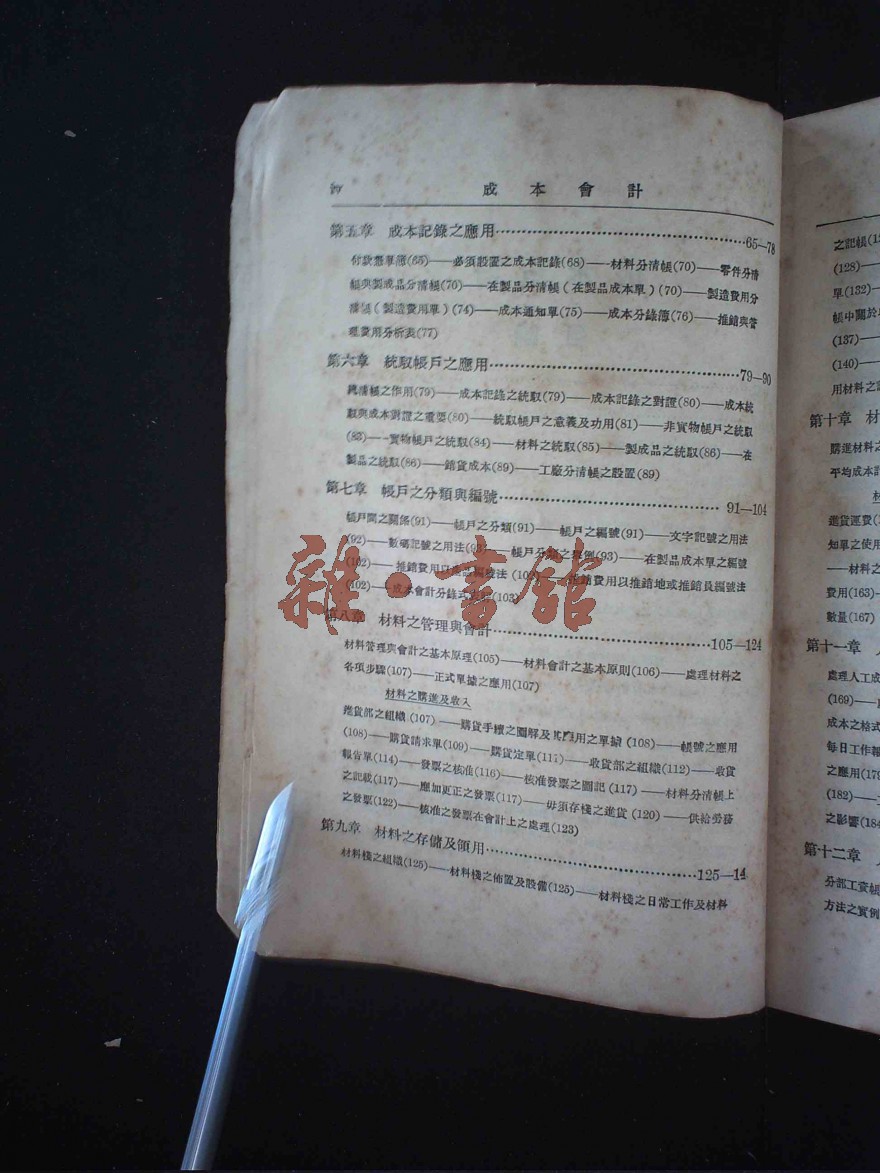 iv 成本會計
第五章 成本記錄之應用 65—78
付款憑單簿(65)——必須設置之成本記錄(68)——材料分清帳(70)——零件分清
帳與製成品分清帳(70)——在製品分清帳(在製品成本單)(70)——製造費用分
清帳(製造費用單)(74)——成本通知單(75)——成本分錄簿(76)——推銷與管
理費用分析表(77)
第六章 統馭帳戶之應用 79—90
總清帳之作用(79)——成本記錄之統馭(79)——成本記錄之對證(80)——成本統
馭與成本對證之重要(80)——統馭帳戶之意義及功用(81)——非實物帳戶之統馭
(83)——實物帳戶之統馭(84)——材料之統馭(85)——製成品之統馭(86)——在
製品之統馭(86)——銷貨成本(89)——工廠分清帳之設置(89)
第七章 帳戶之分類與編號 91—104
帳戶間之關係(91)——帳戶之分類(91)——帳戶之編號(91)——文字記號之用法
(92)——數碼記號之用法(93)——帳戶分類之舉例(93)——在製品成本單之編號
(102)——推銷費用以產品編號法(102)——推銷費用以推銷地或推銷員編號法
(102)——成本會計分錄(103)
第八章 材料之管理與會計 105—124
材料管理與會計之基本原理(105)——材料會計之基本原則(106)——處理材料之
各項步驟(107)——正式單據之應用(107)
材料之購進及收入
進貨部之組織(107)——購貨手續之圖解及其應用之單據(108)——帳號之應用
(108)——購貨請求單(109)——購貨定單(111)——收貨部之組織(112)——收貨
報告單(114)——發票之核准(116)——核准發票之圖記(117)——材料分清帳上
之記載(117)——應加更正之發票(117)——毋須存棧之進貨(120)——供給勞務
之發票(122)——核准之發票在會計上之處理(123)
第九章 材料之存儲及領用 125—14
材料棧之組織(125)——材料棧之佈置及設備(125)——材料棧之日常工作及材料
之記帳(12
(128)——
單(132)—
帳中關於
(137)——
(140)——
用材料之
第十章 材
購進材料之
平均成本
材
進貨運費(
知單之使用
——材料之
費用(163)—
數量(167)
第十一章
處理人工成
(169)——
成本之格式
每日工作報
之應用(179
(182)——
之影響(184
第十二章
分部工資帳
方法之實例
雜·書館